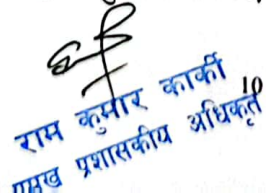 राम कुमार कार्की
10
प्रमुख प्रशासकीय अधिकृत